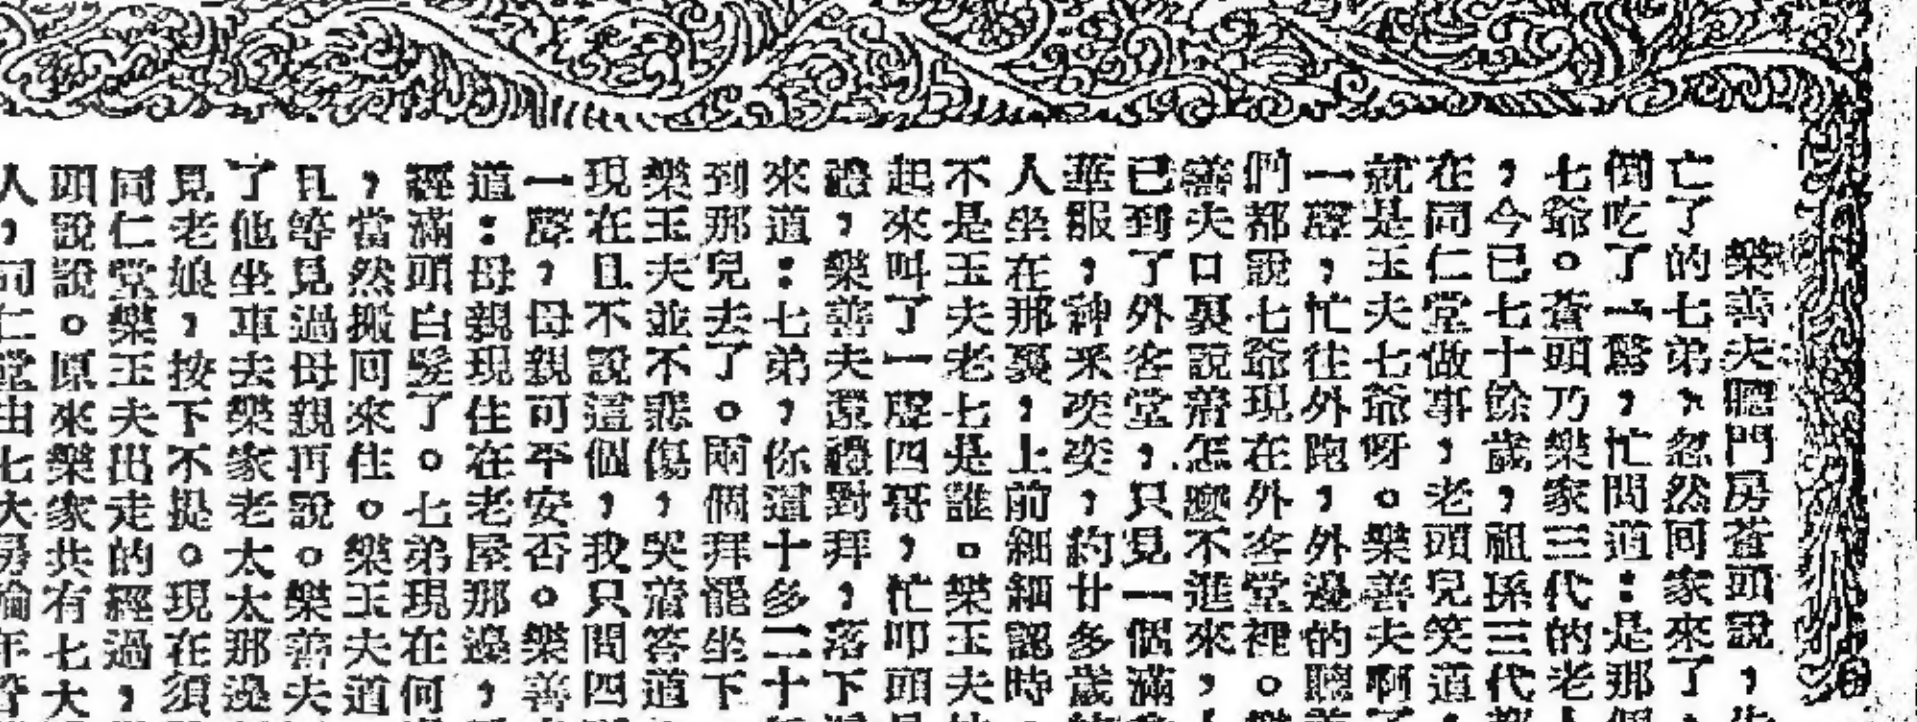 樂善夫聽門房蒼頭說，
亡了的七弟，忽然回家來了，
倒吃了一驚，忙問道：是那
七爺。蒼頭乃樂家三代的老
，今已七十餘歲，祖孫三代
在同仁堂做事，老頭兒笑道
就是玉夫七爺呀。樂善夫啊
一聲，忙往外跑，外邊的聽
們都說七爺現在外客堂裡。
善夫口裏說着怎麼不進來，
已到了外客堂，只見一個滿
華服，神采奕奕，約廿多歲
人坐在那裏，上前細細認時
不是玉夫老七是誰。樂玉夫
起來叫了一聲四哥，忙叩頭
禮，樂善夫還禮對拜，落下
來道：七弟，你這十多二十
到那兒去了。兩個拜罷坐下
樂玉夫並不悲傷，哭着答道
現在且不說這個，我只問四
一聲，母親可平安否。樂善
道：母親現住在老屋那邊，
經滿頭白髮了。七弟現在何
，當然搬回來住。樂玉夫道
且等見過母親再說。樂善夫
了他坐車去樂家老太太那邊
見老娘，按下不提。現在須
同仁堂樂玉夫出走的經過，
頭說說。原來樂家共有七大
人，同仁堂由七大房輪年